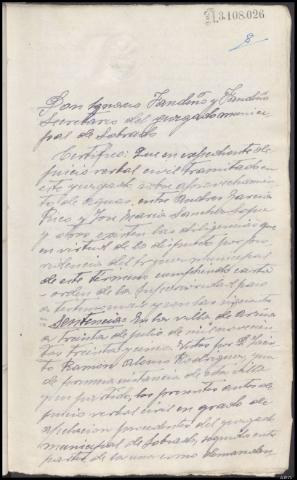 3.108.026
8
Don Ignacio Fandiño y Fandiño
Secretario del juzgado munici-
pal de Sobrado
Certifico: Que en expediente de
juicio verbal civil tramitado en
este juzgado sobre aprovechamien-
to de aguas, entre Andres Garcia
Rico y Jose Maria Sanchez Lopez
y otro existen las diligencias que
en virtud de lo dispuesto por pro-
videncia del tribunal municipal
de este termino cumpliendo carta
orden de la Superioridad paso
a testimoniar y son las siguientes
Sentencia: En la villa de Arzua
a treinta de julio de mil novecien
tos treinta y cinco. Visto por D.
to Ramon Rodriguez, juez
de primera instancia de esta villa
y su partido, los presentes autos de
juicio verbal civil en grado de
apelacion procedentes del juzgado
municipal de Sobrado, seguido entre
partes de la una como demandan